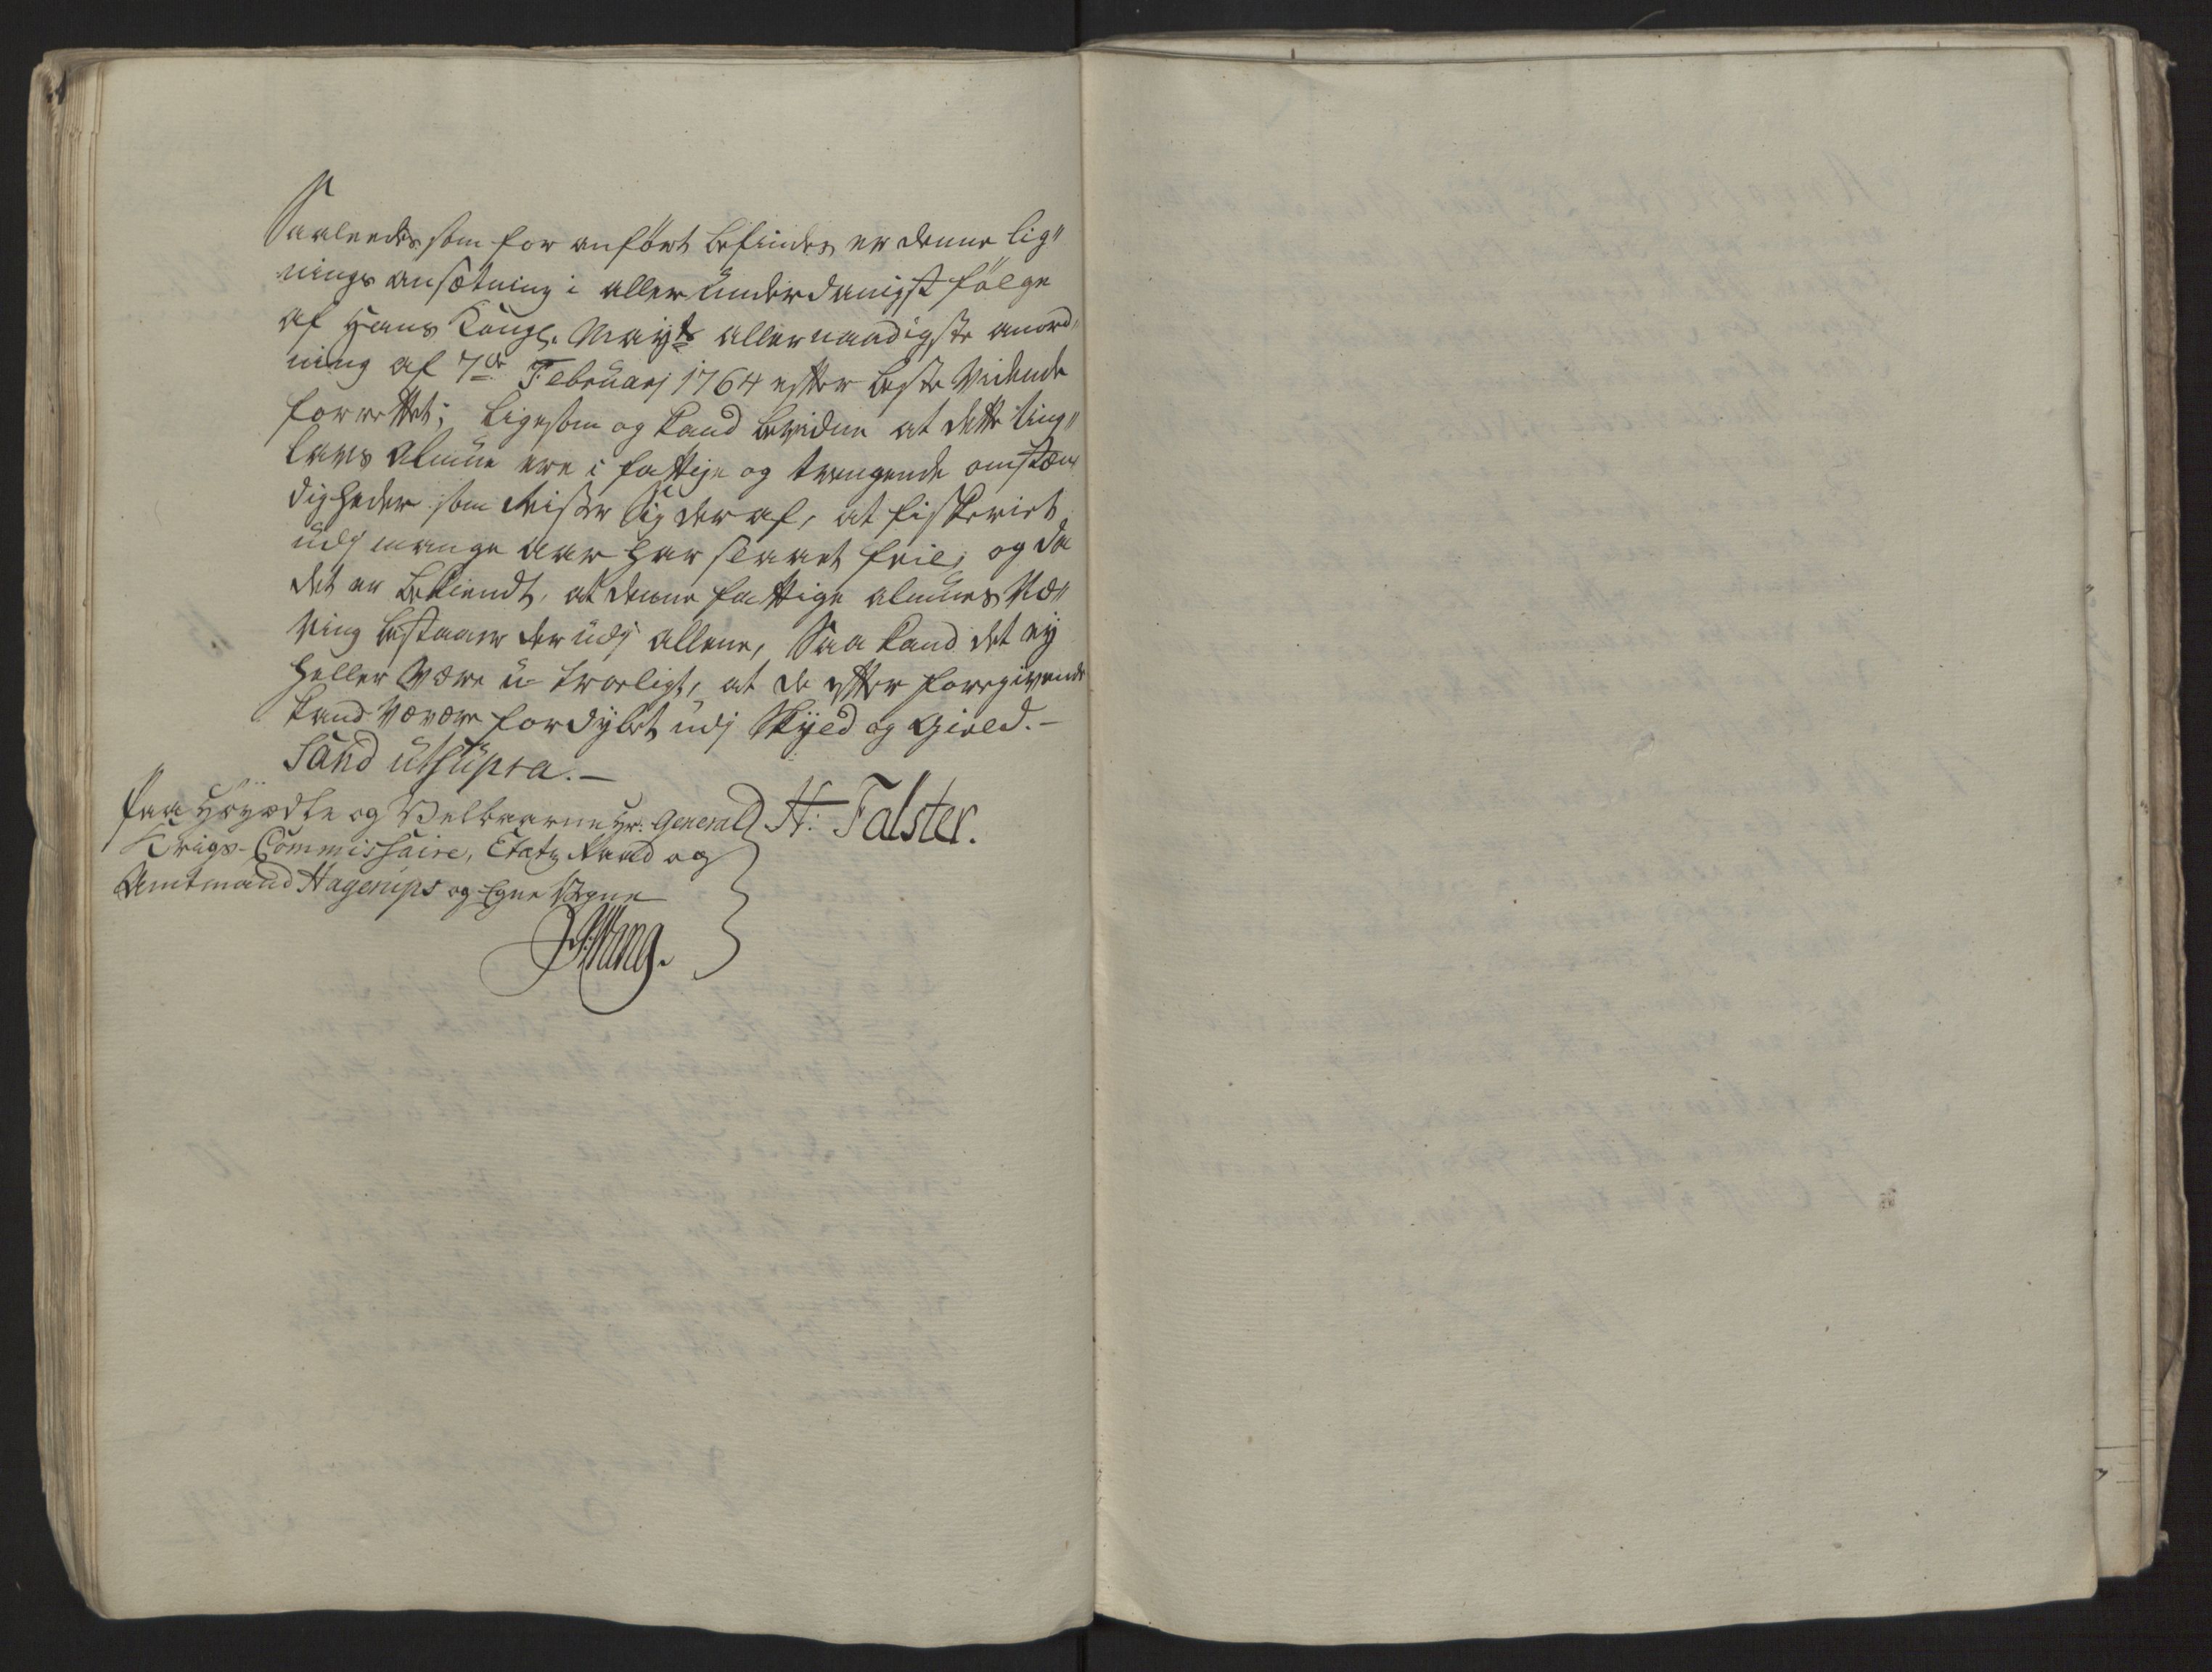 Saaleedes som for anført befindes er denne lig„
nings ansætning i allerunderdanigst følge
af Hans Kongl. Mayts allernaadigste anord„
ning af 7de Februarj 1764 efter beste Vidende
forrettet; ligesom og kand bevidne at dette ting„
lavs Almue ere i fattige og trengende omstæn
digheder som reiser sig deraf, at fiskeriet
udj mange aar har slaaet feil; og da
det er bekiendt, at denne fattige almues Næ„
ring bestaaer derudj allene, Saa kand det ey
heller være u-troeligt, at de efter foregivende
kand være fordybet udj Skyld og Gield.-
Sand utsupra.-
Paa Høyædle og Velbaarne Hr. General
Krigs-Commissaire, Etatz Raad og
Amtmand Hagerups og Egne Vegne
H: Falster.
Wang.